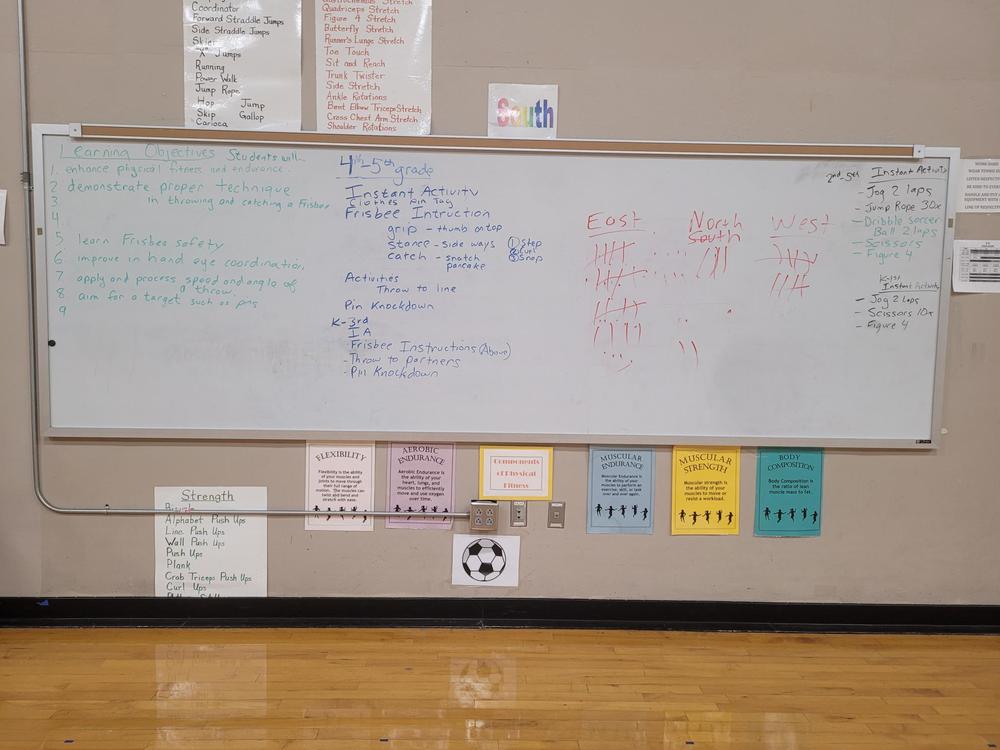 Coordinator
Forward Straddle Jumps
Side Straddle Jumps
Skier
"X" Jumps
Running
Power Walk
Jump Rope
Hop Jump
Skip Gallop
Carioca
Gastrocnemius Stretch
Quadriceps Stretch
Figure 4 Stretch
Butterfly Stretch
Runner's Lunge Stretch
Toe Touch
Sit and Reach
Trunk Twister
Side Stretch
Ankle Rotations
Bent Elbow Triceps Stretch
Cross Chest Arm Stretch
Shoulder Rotations
South
Learning Objectives Students will
1. enhance physical fitness and endurance.
2 demonstrate proper technique
3 in throwing and catching a Frisbee
4
5 learn Frisbee safety
6 improve in hand eye coordination,
7 apply and process speed and angle of throw.
8 aim for a target such as pins
9
4th-5th grade
Instant Activity
Clothes Pin Tag
Frisbee Intruction
grip - thumb on top
stance - side ways
catch - snatch
pancake
① Step
② Curl
③ Snap
Activities
Throw to line
Pin Knockdown
K-3rd
IA
- Frisbee Instructions (Above)
- Throw to partners
- Pin Knockdown
East
North
South
West
2nd-5th Instant Activity
- Jog 2 laps
- Jump Rope 30x
- Dribble soccer
Ball 2 laps
- Scissors
- Figure 4
K-1st
Instant Activity
- Jog 2 laps
- Scissors 10x
- Figure 4
FLEXIBILITY
Flexibility is the ability
of your muscles and
joints to move through
their full range of
motion. The muscles can
twist and bend and
stretch with ease.
AEROBIC
ENDURANCE
Aerobic Endurance is
the ability of your
heart, lungs, and
muscles to efficiently
move and use oxygen
over time.
Components
of Physical
Fitness
MUSCULAR
ENDURANCE
Muscular Endurance is
the ability of your
muscles to perform an
exercise, skill, or task
over and over again.
MUSCULAR
STRENGTH
Muscular strength is
the ability of your
muscles to move or
resist a workload.
BODY
COMPOSITION
Body Composition is
the ratio of lean
muscle mass to fat.
Strength
Alphabet Push Ups
Line Push Ups
Wall Push Ups
Push Ups
Plank
Crab Triceps Push Ups
Curl Ups